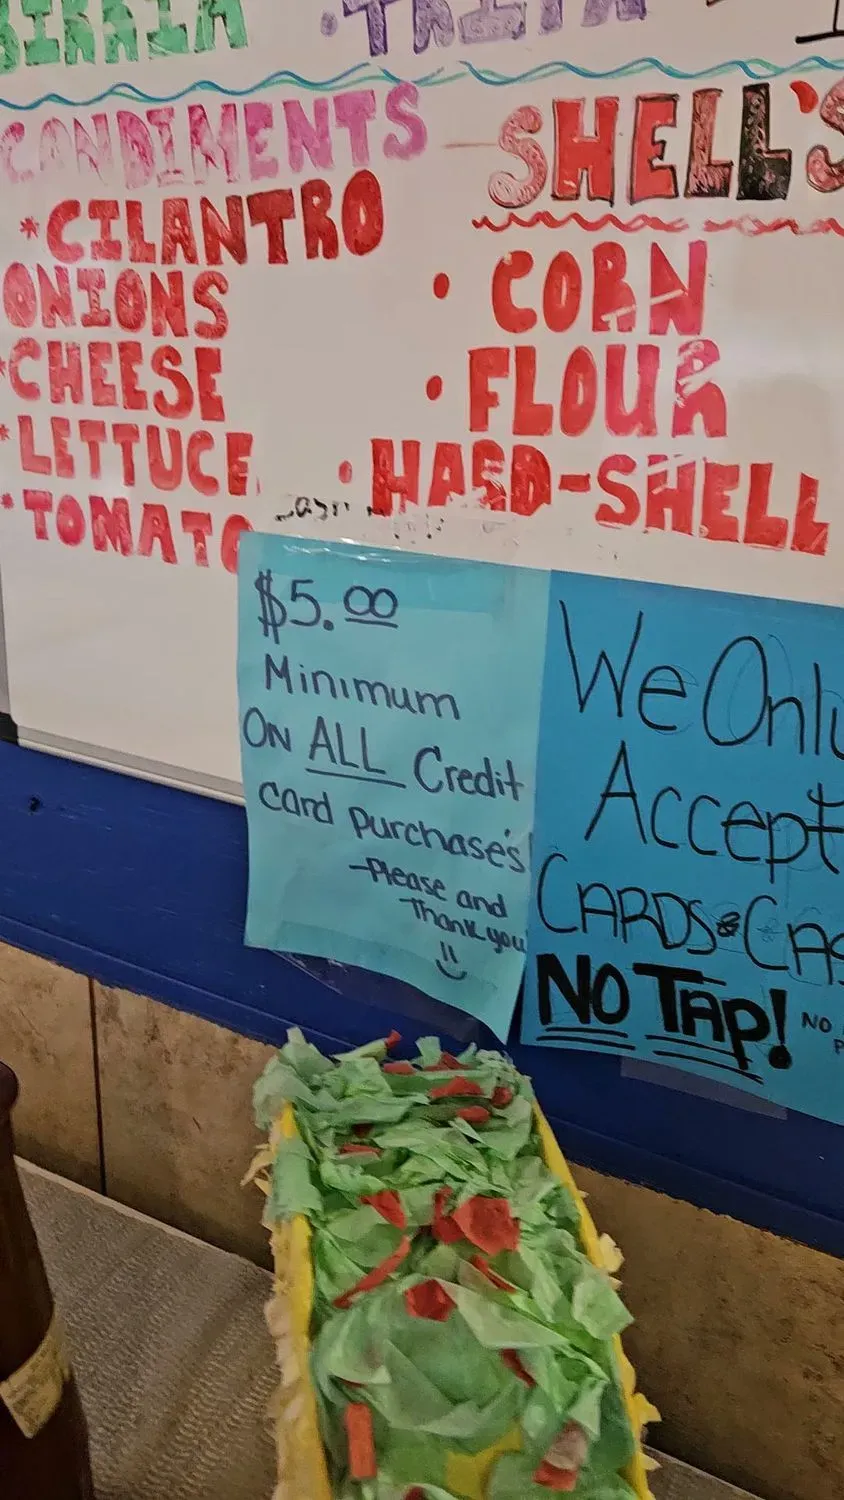 CONDIMENTS
*CILANTRO
ONIONS
*CHEESE
*LETTUCE
*TOMATO
SHELL'S
• CORN
• FLOUR
• HARD-SHELL
$5.00
Minimum
ON ALL Credit
Card purchase's
-Please and
Thank you
We Only
Accept
CARDS &
NO TAP!
NO